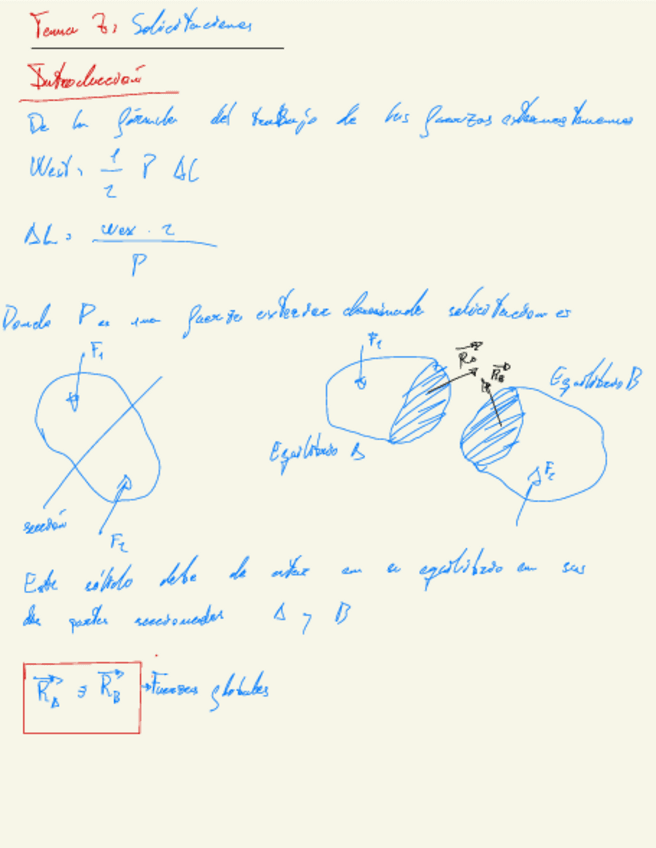 Tema 7: Solicitaciones
Introducción
De la fórmula del trabajo de las fuerzas externas tenemos
Wext = 1/2 P ΔL
ΔL = Wex · 2 / P
Donde P es una fuerza exterior denominada solicitaciones
F₁
sección
F₂
F₁
R_A
Equilibrio A
R_B
Equilibrio B
F₂
Este sólido debe de estar en equilibrio en sus
dos partes seccionadas A y B
R_A = R_B → Fuerzas globales